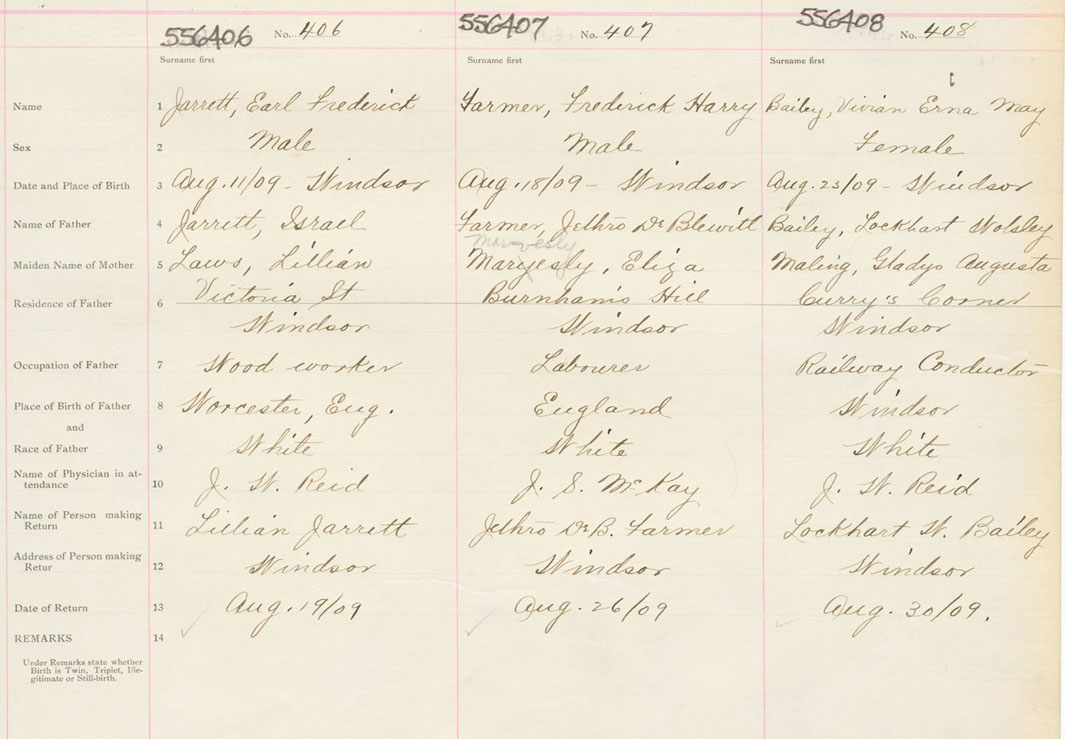 556406 No. 406 556407 No. 407 556408 No. 408
Surname first Surname first Surname first
Name 1 Jarrett, Earl Frederick Farmer, Frederick Harry Bailey, Vivian Erna May
Sex 2 Male Male Female
Date and Place of Birth 3 Aug. 11/09 - Windsor Aug. 18/09 - Windsor Aug. 23/09 - Windsor
Name of Father 4 Jarrett, Israel Farmer, Jethro De Blewitt Bailey, Lockhart Wolsley
Maiden Name of Mother 5 Laws, Lillian Eliza Maling, Gladys Augusta
Residence of Father 6 Victoria St Burnham's Hill Curry's Corner
Windsor Windsor Windsor
Occupation of Father 7 Wood worker Labourer Railway Conductor
Place of Birth of Father 8 Worcester, Eng. England Windsor
and
Race of Father 9 White White White
Name of Physician in at-
tendance 10 J. W. Reid J. S. McKay J. W. Reid
Name of Person making
Return 11 Lillian Jarrett Jethro De B. Farmer Lockhart W. Bailey
Address of Person making
Retur 12 Windsor Windsor Windsor
Date of Return 13 Aug. 19/09 Aug. 26/09 Aug. 30/09.
REMARKS 14
Under Remarks state whether
Birth is Twin, Triplet, Ille-
gitimate or Still-birth.